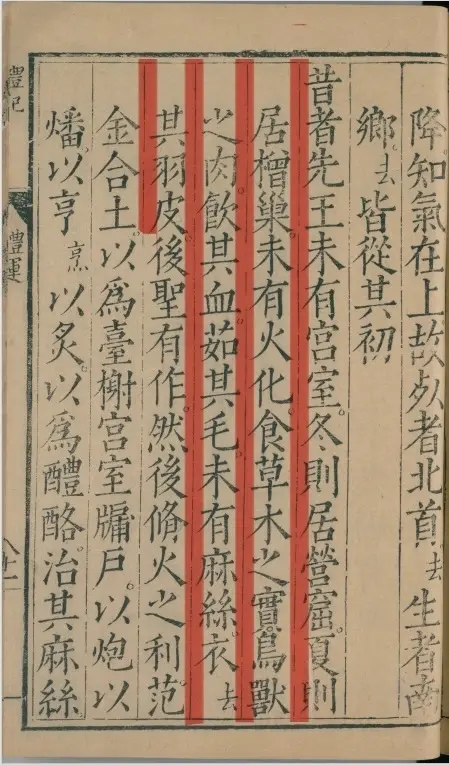 降知氣在上故死者北首去生者南
鄉去皆從其初
昔者先王未有宮室冬則居營窟夏則
居橧巢未有火化食草木之實鳥獸
之肉飮其血茹其毛未有麻絲衣去
其羽皮後聖有作然後脩火之利范
金合土以爲臺榭宮室牖戶以炮以
燔以亨烹以炙以爲醴酪治其麻絲
禮記
禮運